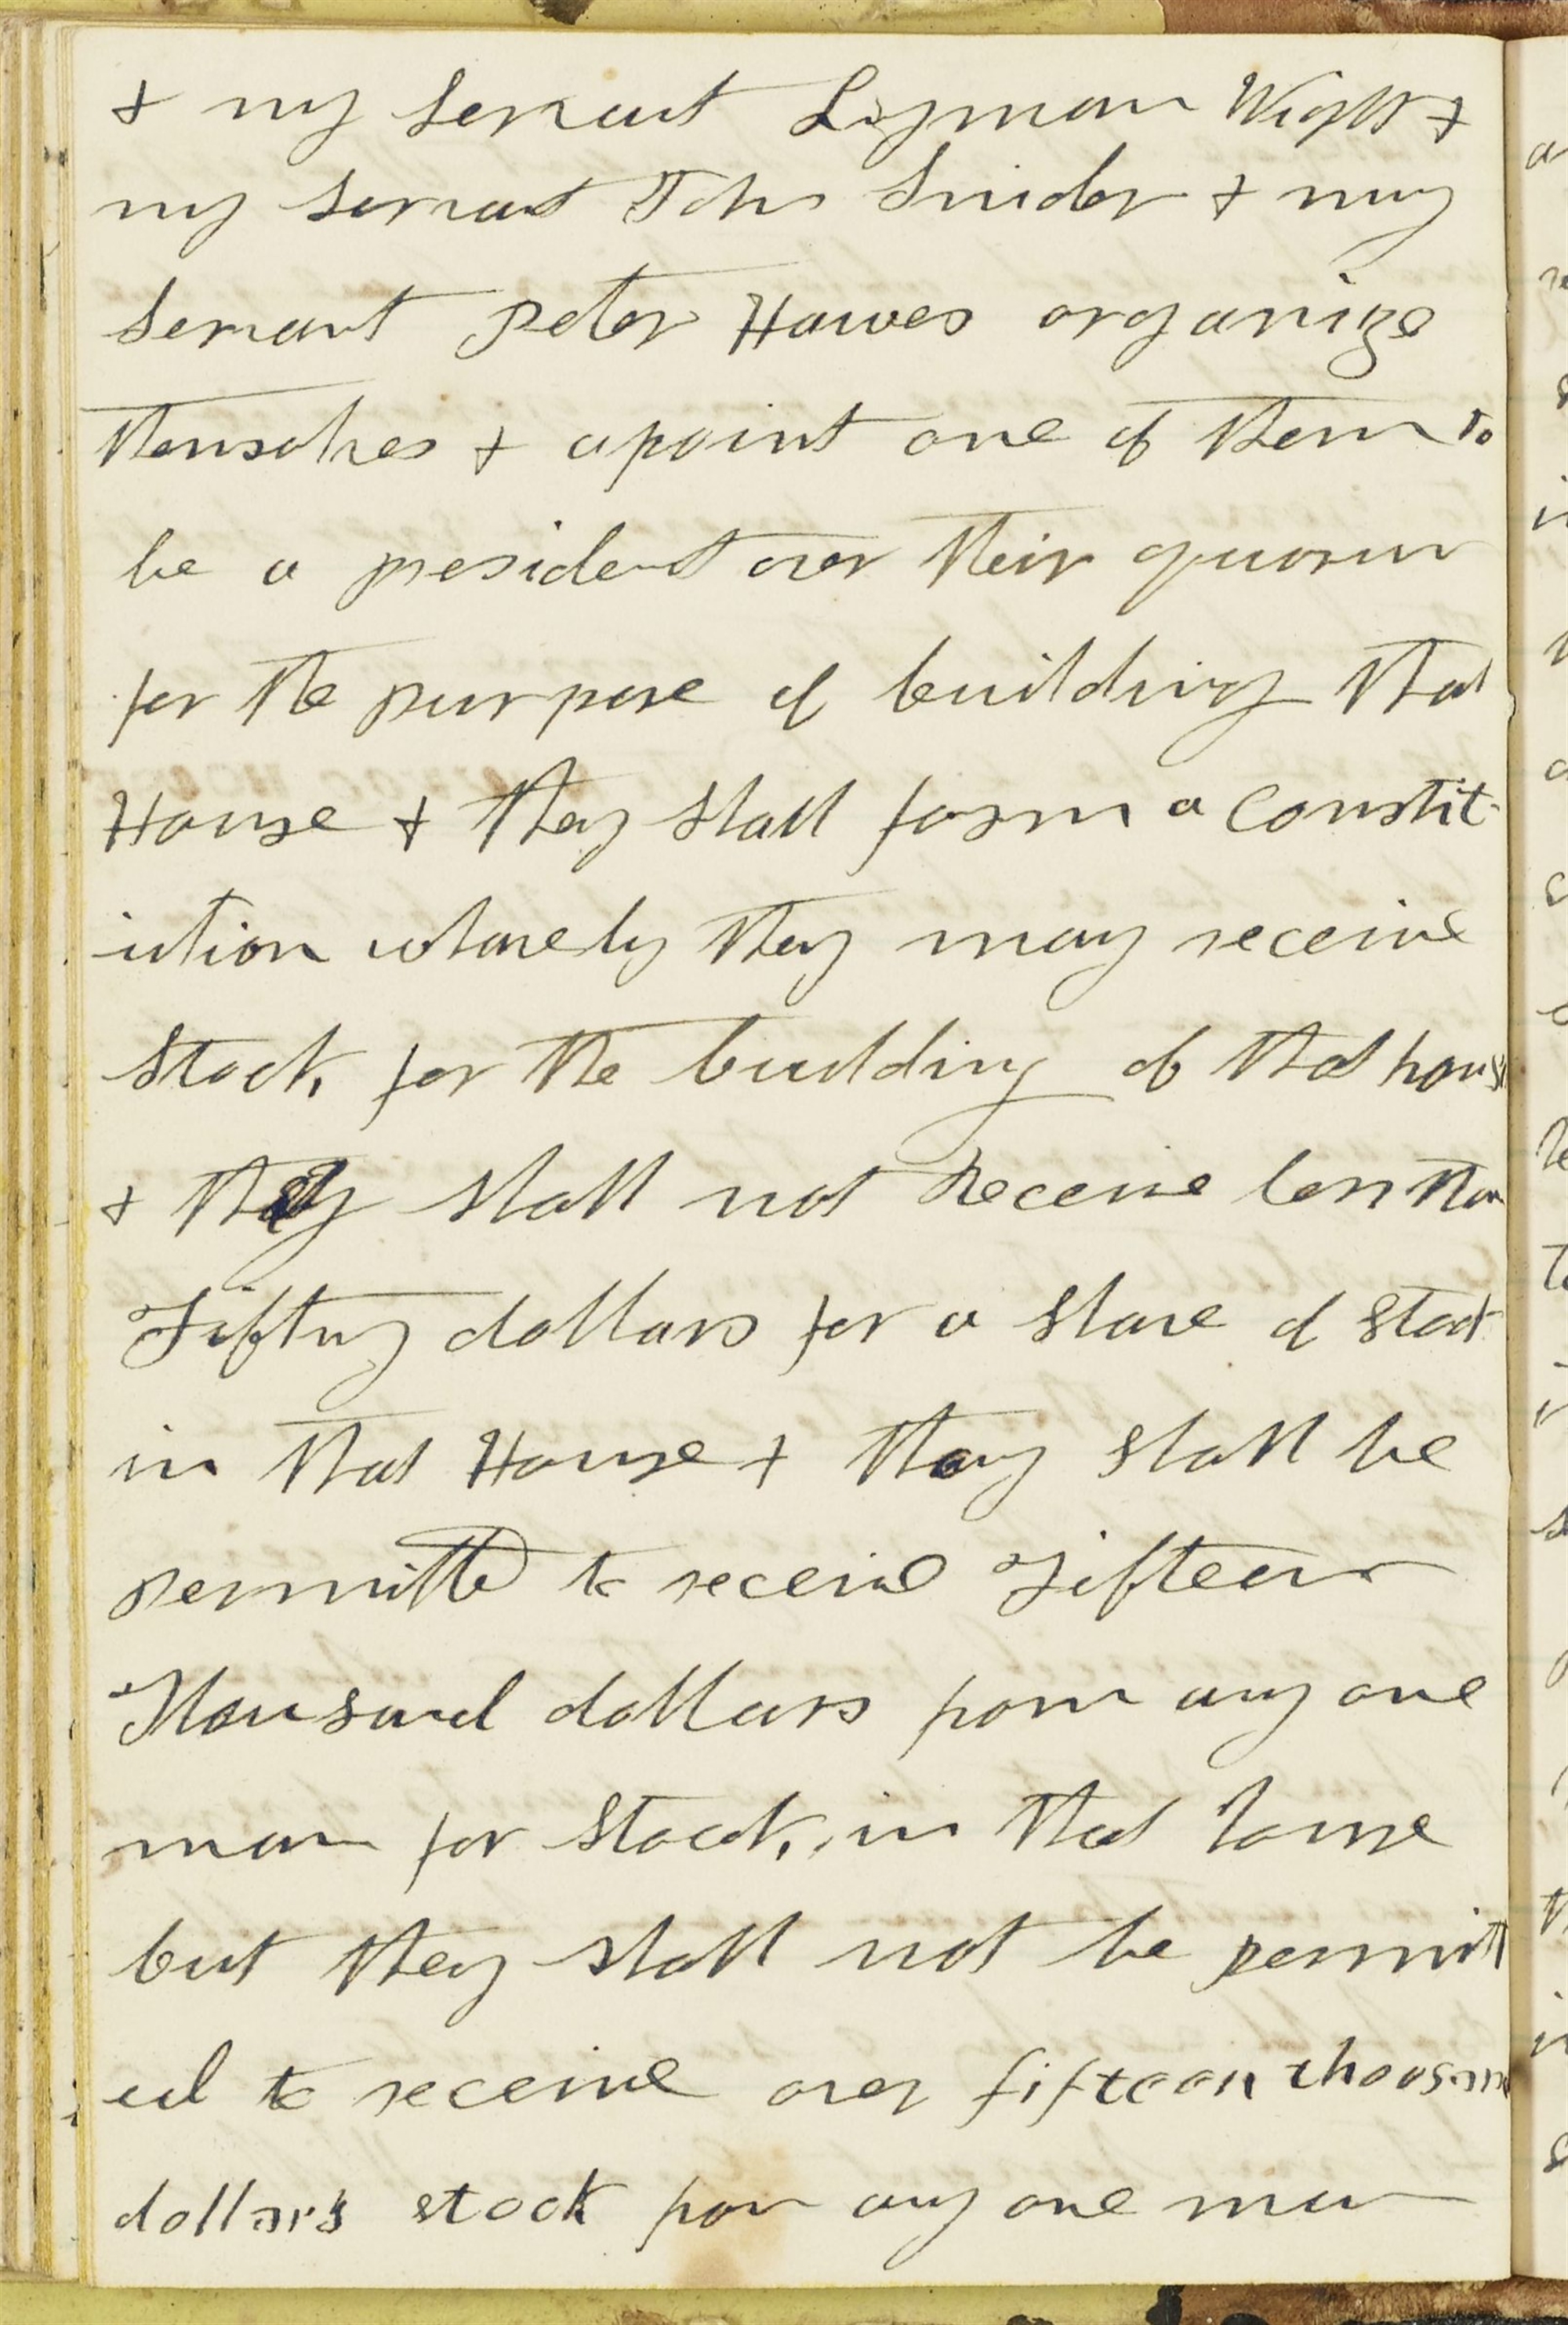 & my servant Lyman Wight &
my servant John Snider & my
servant Peter Hawes organize
themselves & apoint one of them to
be a president over their quorum
for the purpose of building that
House & they shall form a Constit-
ution whareby they may receive
Stock, for the building of that hous
& they shall not Receive less than
Fiftuy dollars for a share of stock
in that House & thay shall be
permitted to receive Fifteen
Thousand dollars from any one
man for Stock, in that house
but they shall not be permitt
ed to receive over fifteen thoosan
dollars stock from any one man